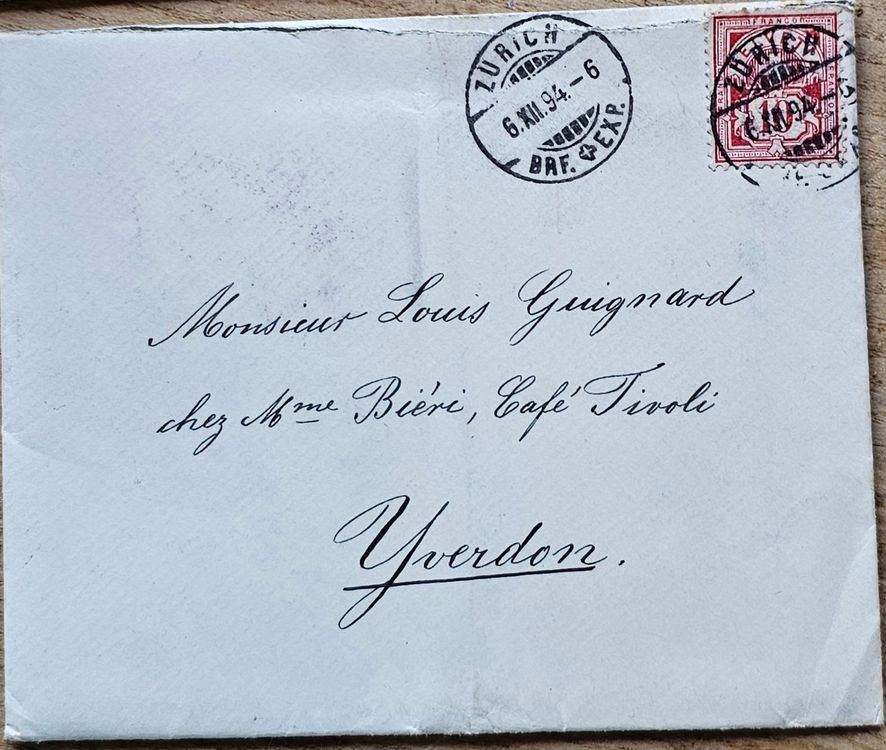 ZÜRICH
6.XII.94.-6
BRF. EXP.
FRANCO
ZÜRICH
10
6.XII.94.-
Monsieur Louis Guignard
chez Mme Biéri, Café Tivoli
Yverdon.